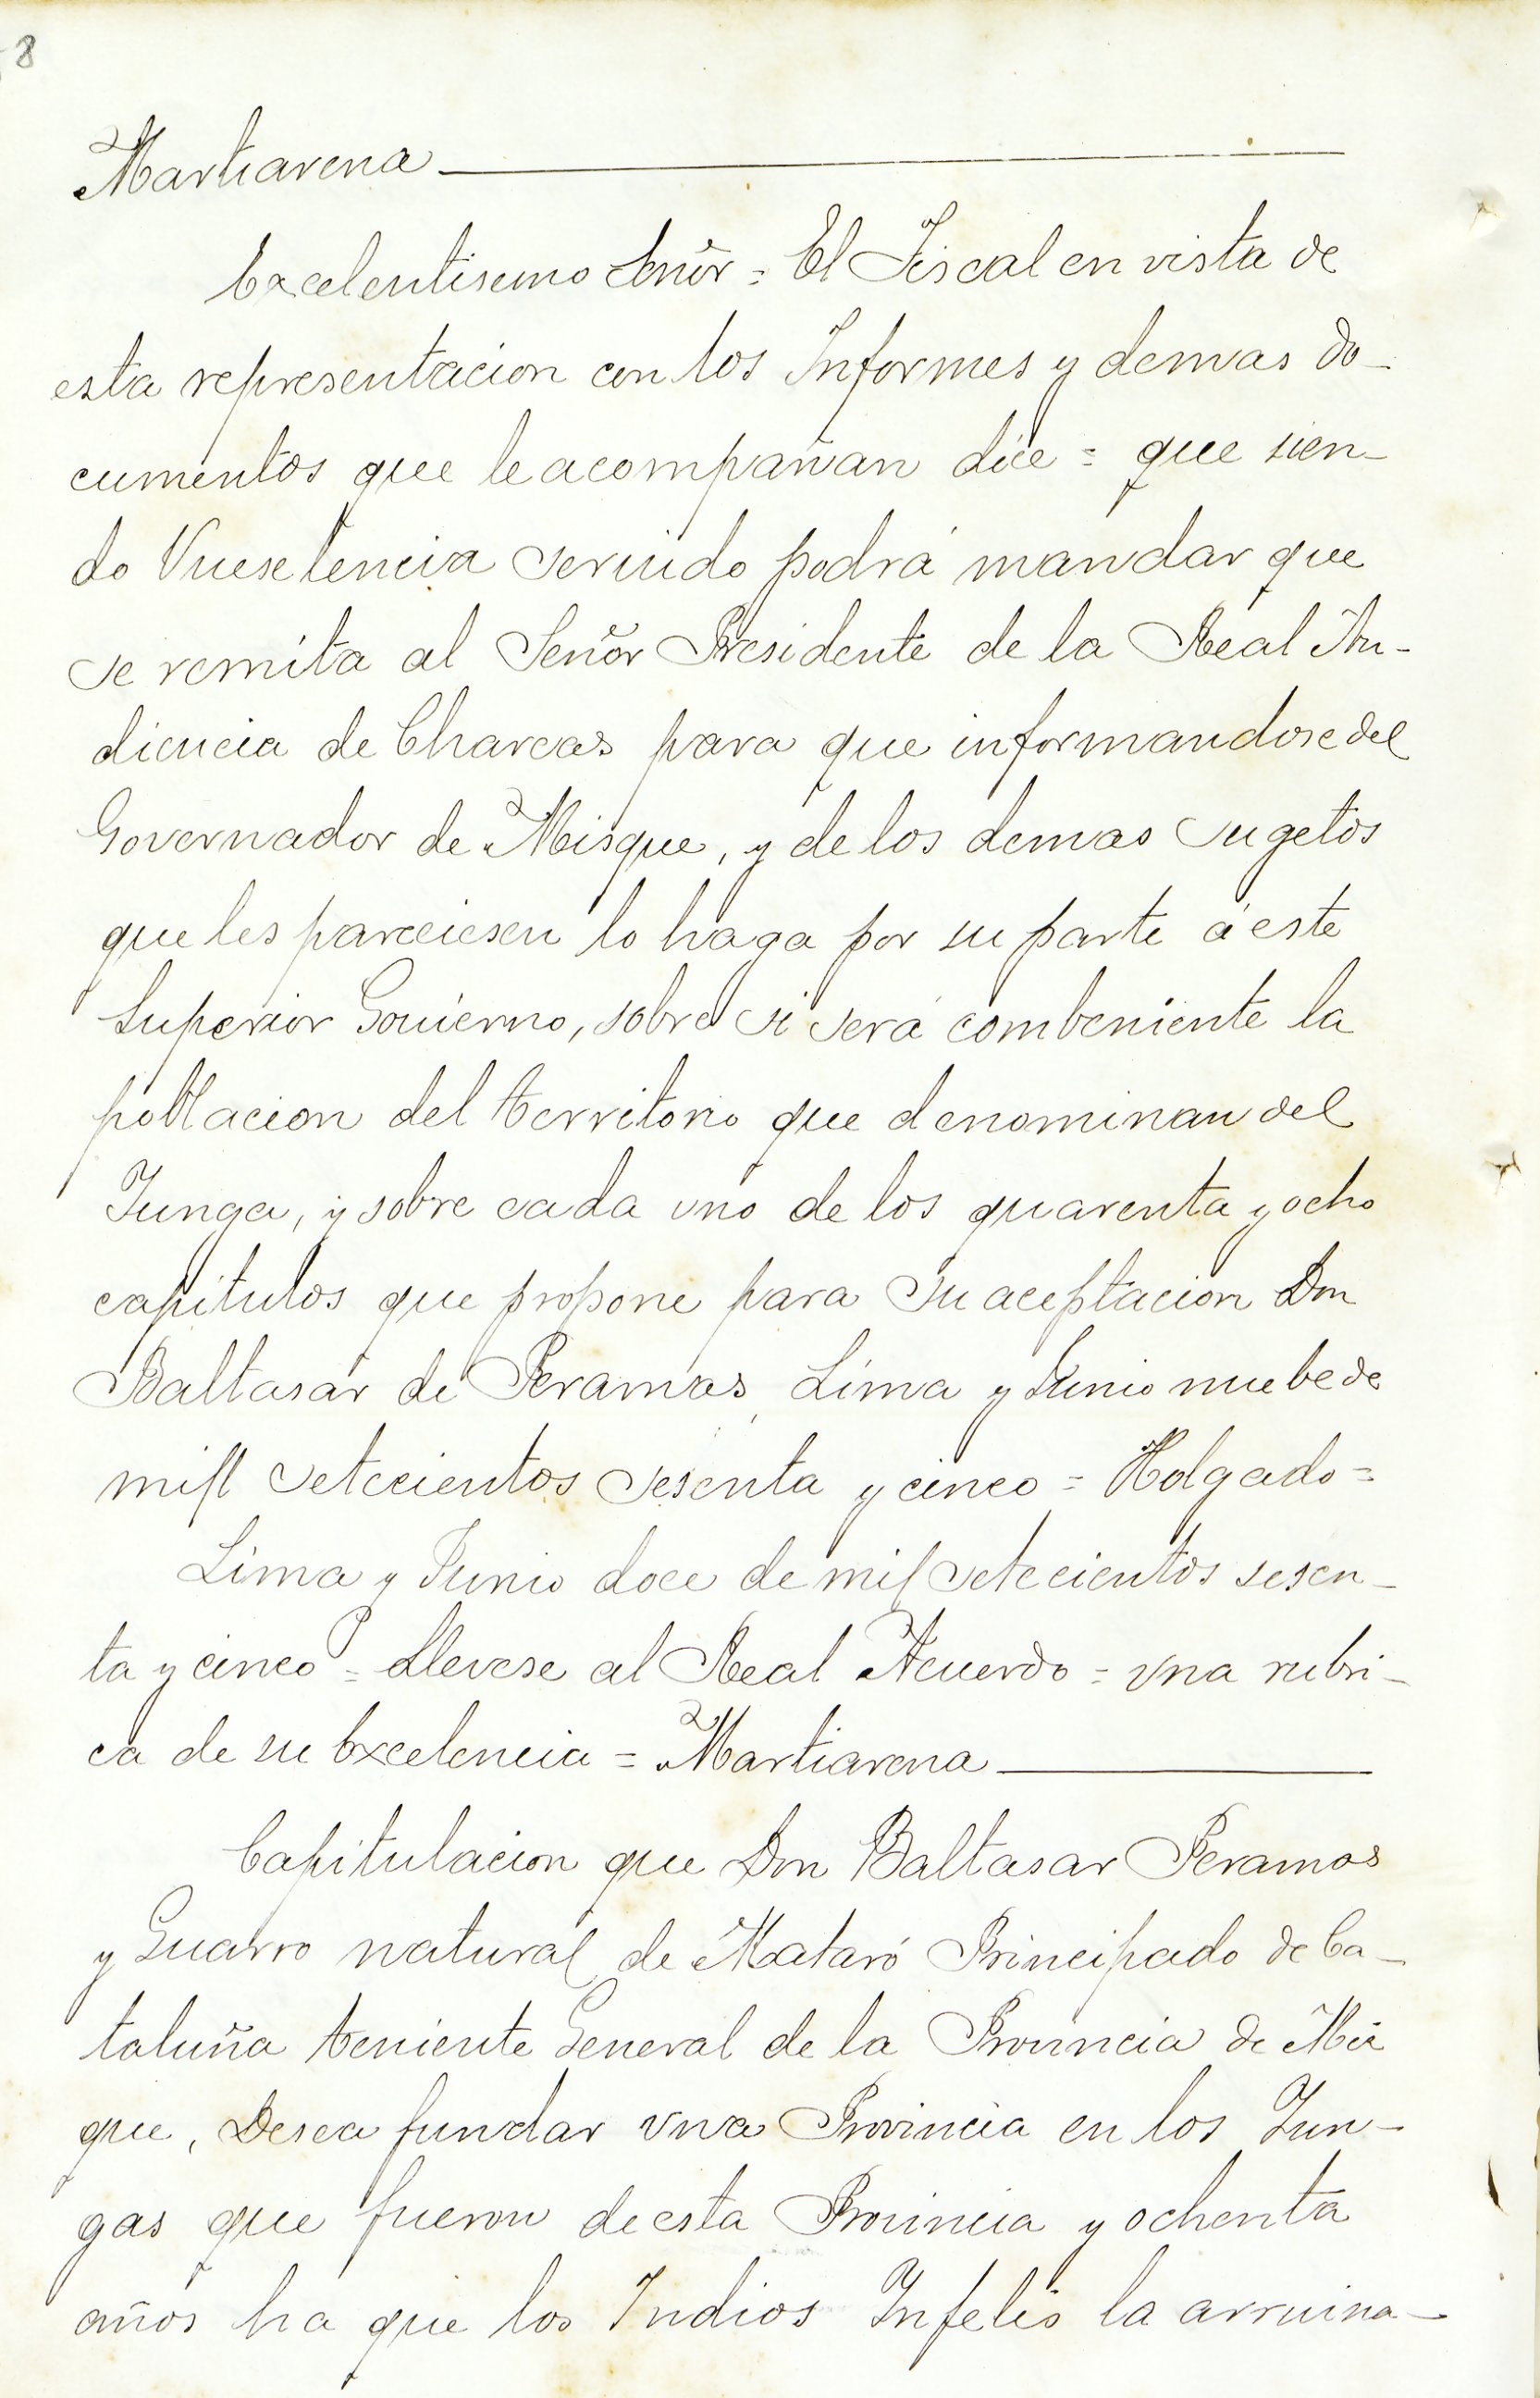 8
Martiarena
Excelentisimo Señor = El Fiscal en vista de
esta representacion con los Informes y demas do-
cumentos que le acompañan dice = que sien-
do Vueselencia seruido podrá mandar que
se remita al Señor Presidente de la Real Au-
diencia de Charcas para que informandose del
Governador de Misque, y de los demas sugetos
que les pareciesen lo haga por su parte á este
Superior Gouierno, sobre si será combeniente la
poblacion del territorio que denominan del
Yunga, y sobre cada uno de los quarenta y ocho
capitulos que propone para su aceptacion Don
Baltasar de Peramas, Lima y Junio nuebe de
mil setecientos sesenta y cinco = Holgado =
Lima y Junio doce de mil setecientos sesen-
ta y cinco = Llevese al Real Acuerdo = vna rubri-
ca de su Excelencia = Martiarena
Capitulacion que Don Baltasar Peramas
y Guarro natural de Mataró Principado de Ca-
taluña teniente General de la Prouincia de Mis
que, Desea fundar vna Provincia en los Yun-
gas que fueron de esta Prouincia y ochenta
años ha que los Indios Infelis la arruina-